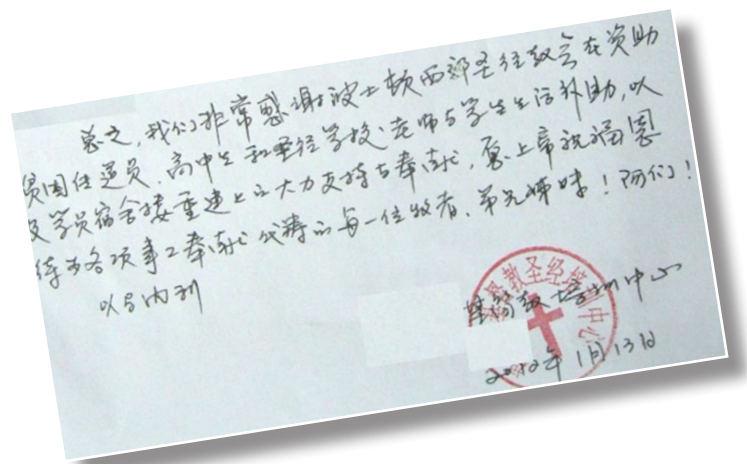 总之,我们非常感谢波士顿西郊圣经教会在资助
贫困传道员、高中生和圣经学校老师与学生生活补助,以
及学员宿舍楼重建上的大力支持与奉献,愿上帝祝福恩
待为各项事工奉献代祷的每一位牧者、弟兄姊妹!阿们!
以马内利
基督教培训中心
督教圣经培训中心
2012年1月13日